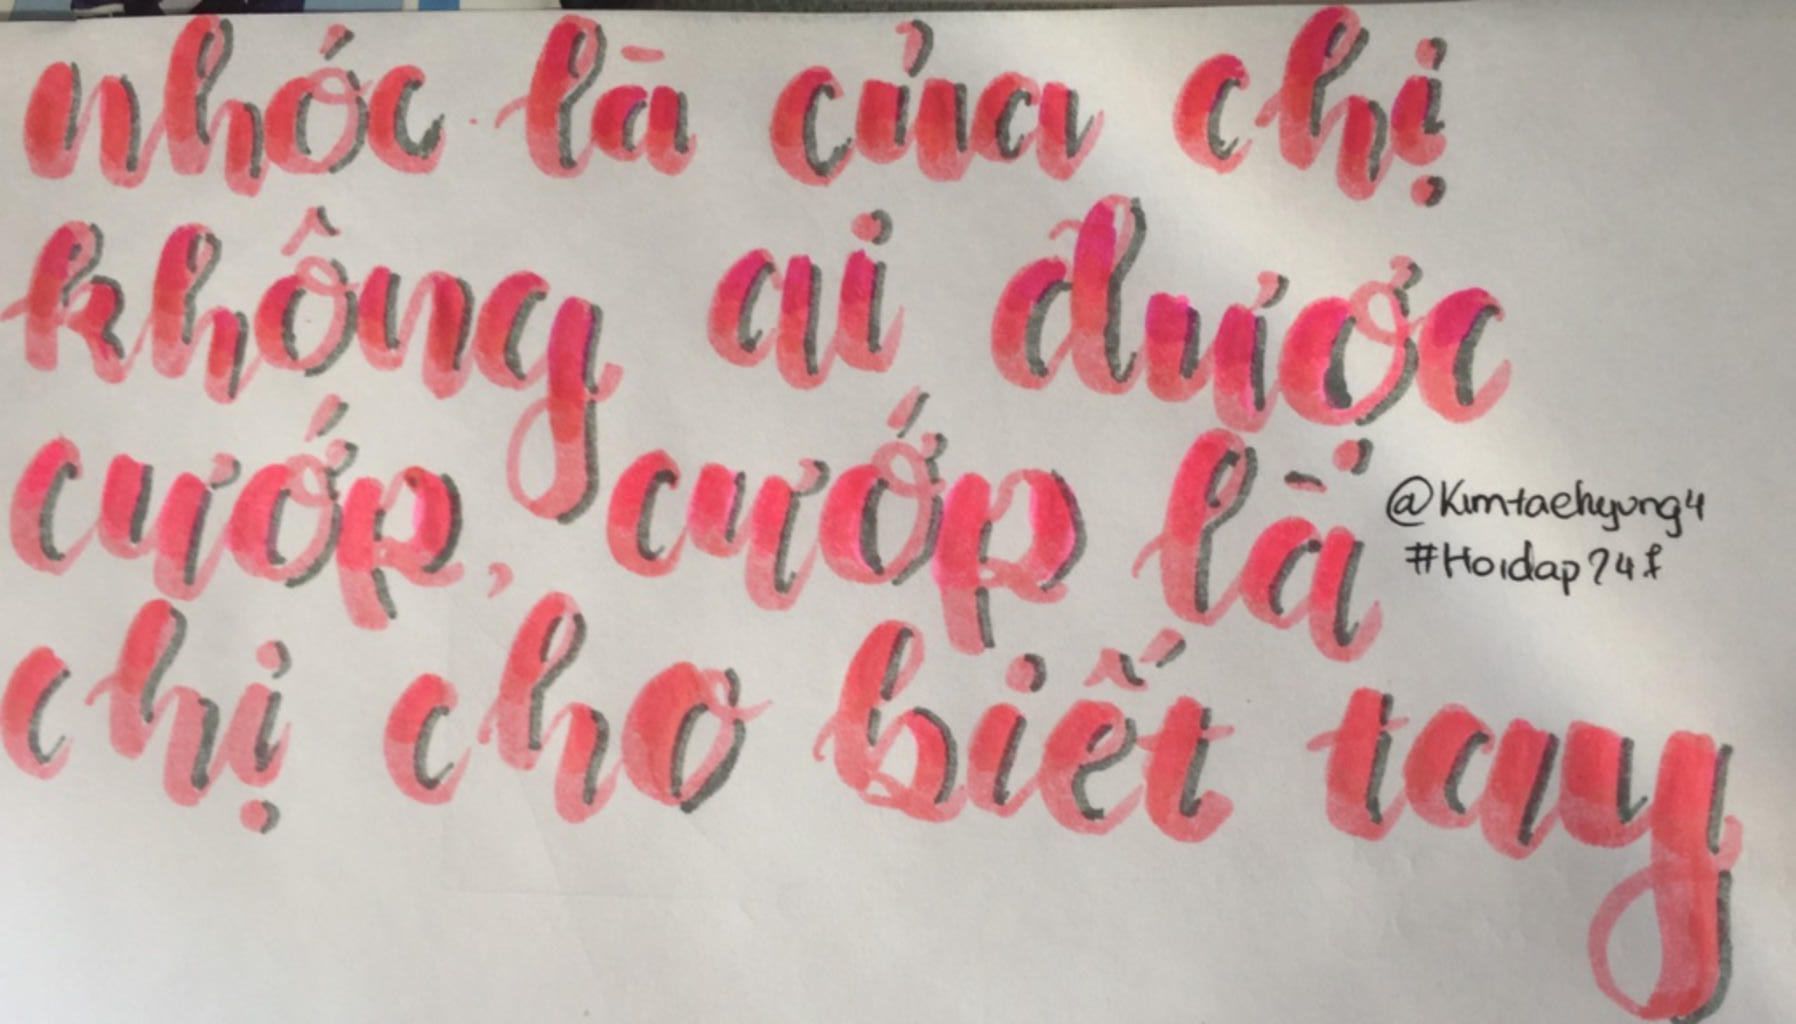 nhóc là của chị
không ai được
cướp, cướp là
@Kimtaehyung4
#Hoidap24f
chị cho biết tay